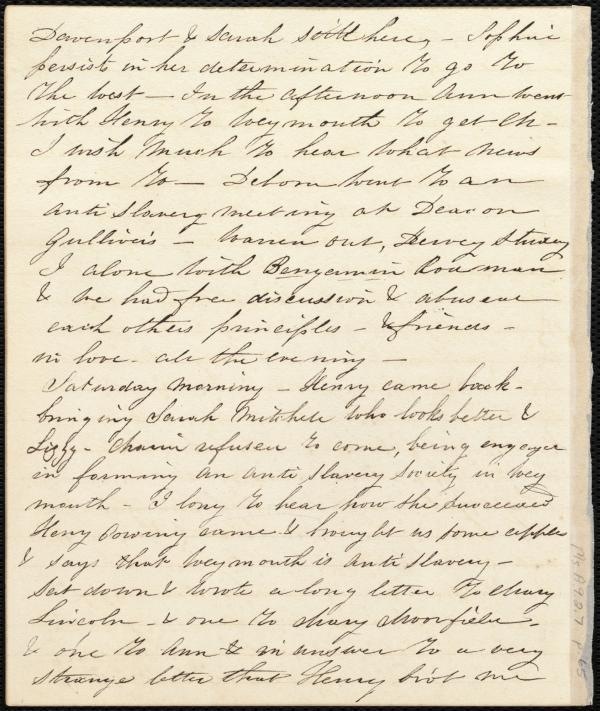 Davenport & Sarah still here, - Sophia
persists in her determination to go to
the West - In the afternoon Ann went
with Henry to Weymouth to get Ch-
I wish much to hear what news
from to - Debora went to an
Anti Slavery meeting at Deacon
Gulliver's - Warren out, Hervey
I alone with Benjamin Bowman
& we had free discussion & abused
each others principles - & friends -
in love - all the evening -
Saturday morning - Henry came back -
bringing Sarah Mitchell who looks better &
Lizzy - refused to come, being engaged
in forming an anti slavery society in Wey
mouth - I long to hear how she succeeded
Henry Cowing came & brought us some apples
& says that Weymouth is anti slavery -
Sat down & wrote a long letter to Mary
Lincoln - & one to Mary
& one to Ann & in answer to a very
strange letter that Henry bro't me
Ms A.9.2.7 p. 65